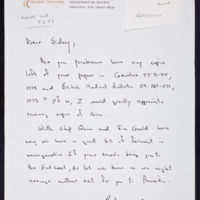 Princeton University
DEPARTMENT OF BIOLOGY
PRINCETON, NEW JERSEY 08540
Dear Sidney,
Do you perchance have any copies
left of your papers in Genetics 77: 71-94,
1974 and British Medical Bulletin 29: 269-271,
1973? If so, I would greatly appreciate
having copies of them.
With Chip Quinn and Jim Gould here
now, we have a good bit of ferment in
neurogenetics. If your travels bring you to
the East Coast, do let us know so we might
arrange another visit for you to Princeton.